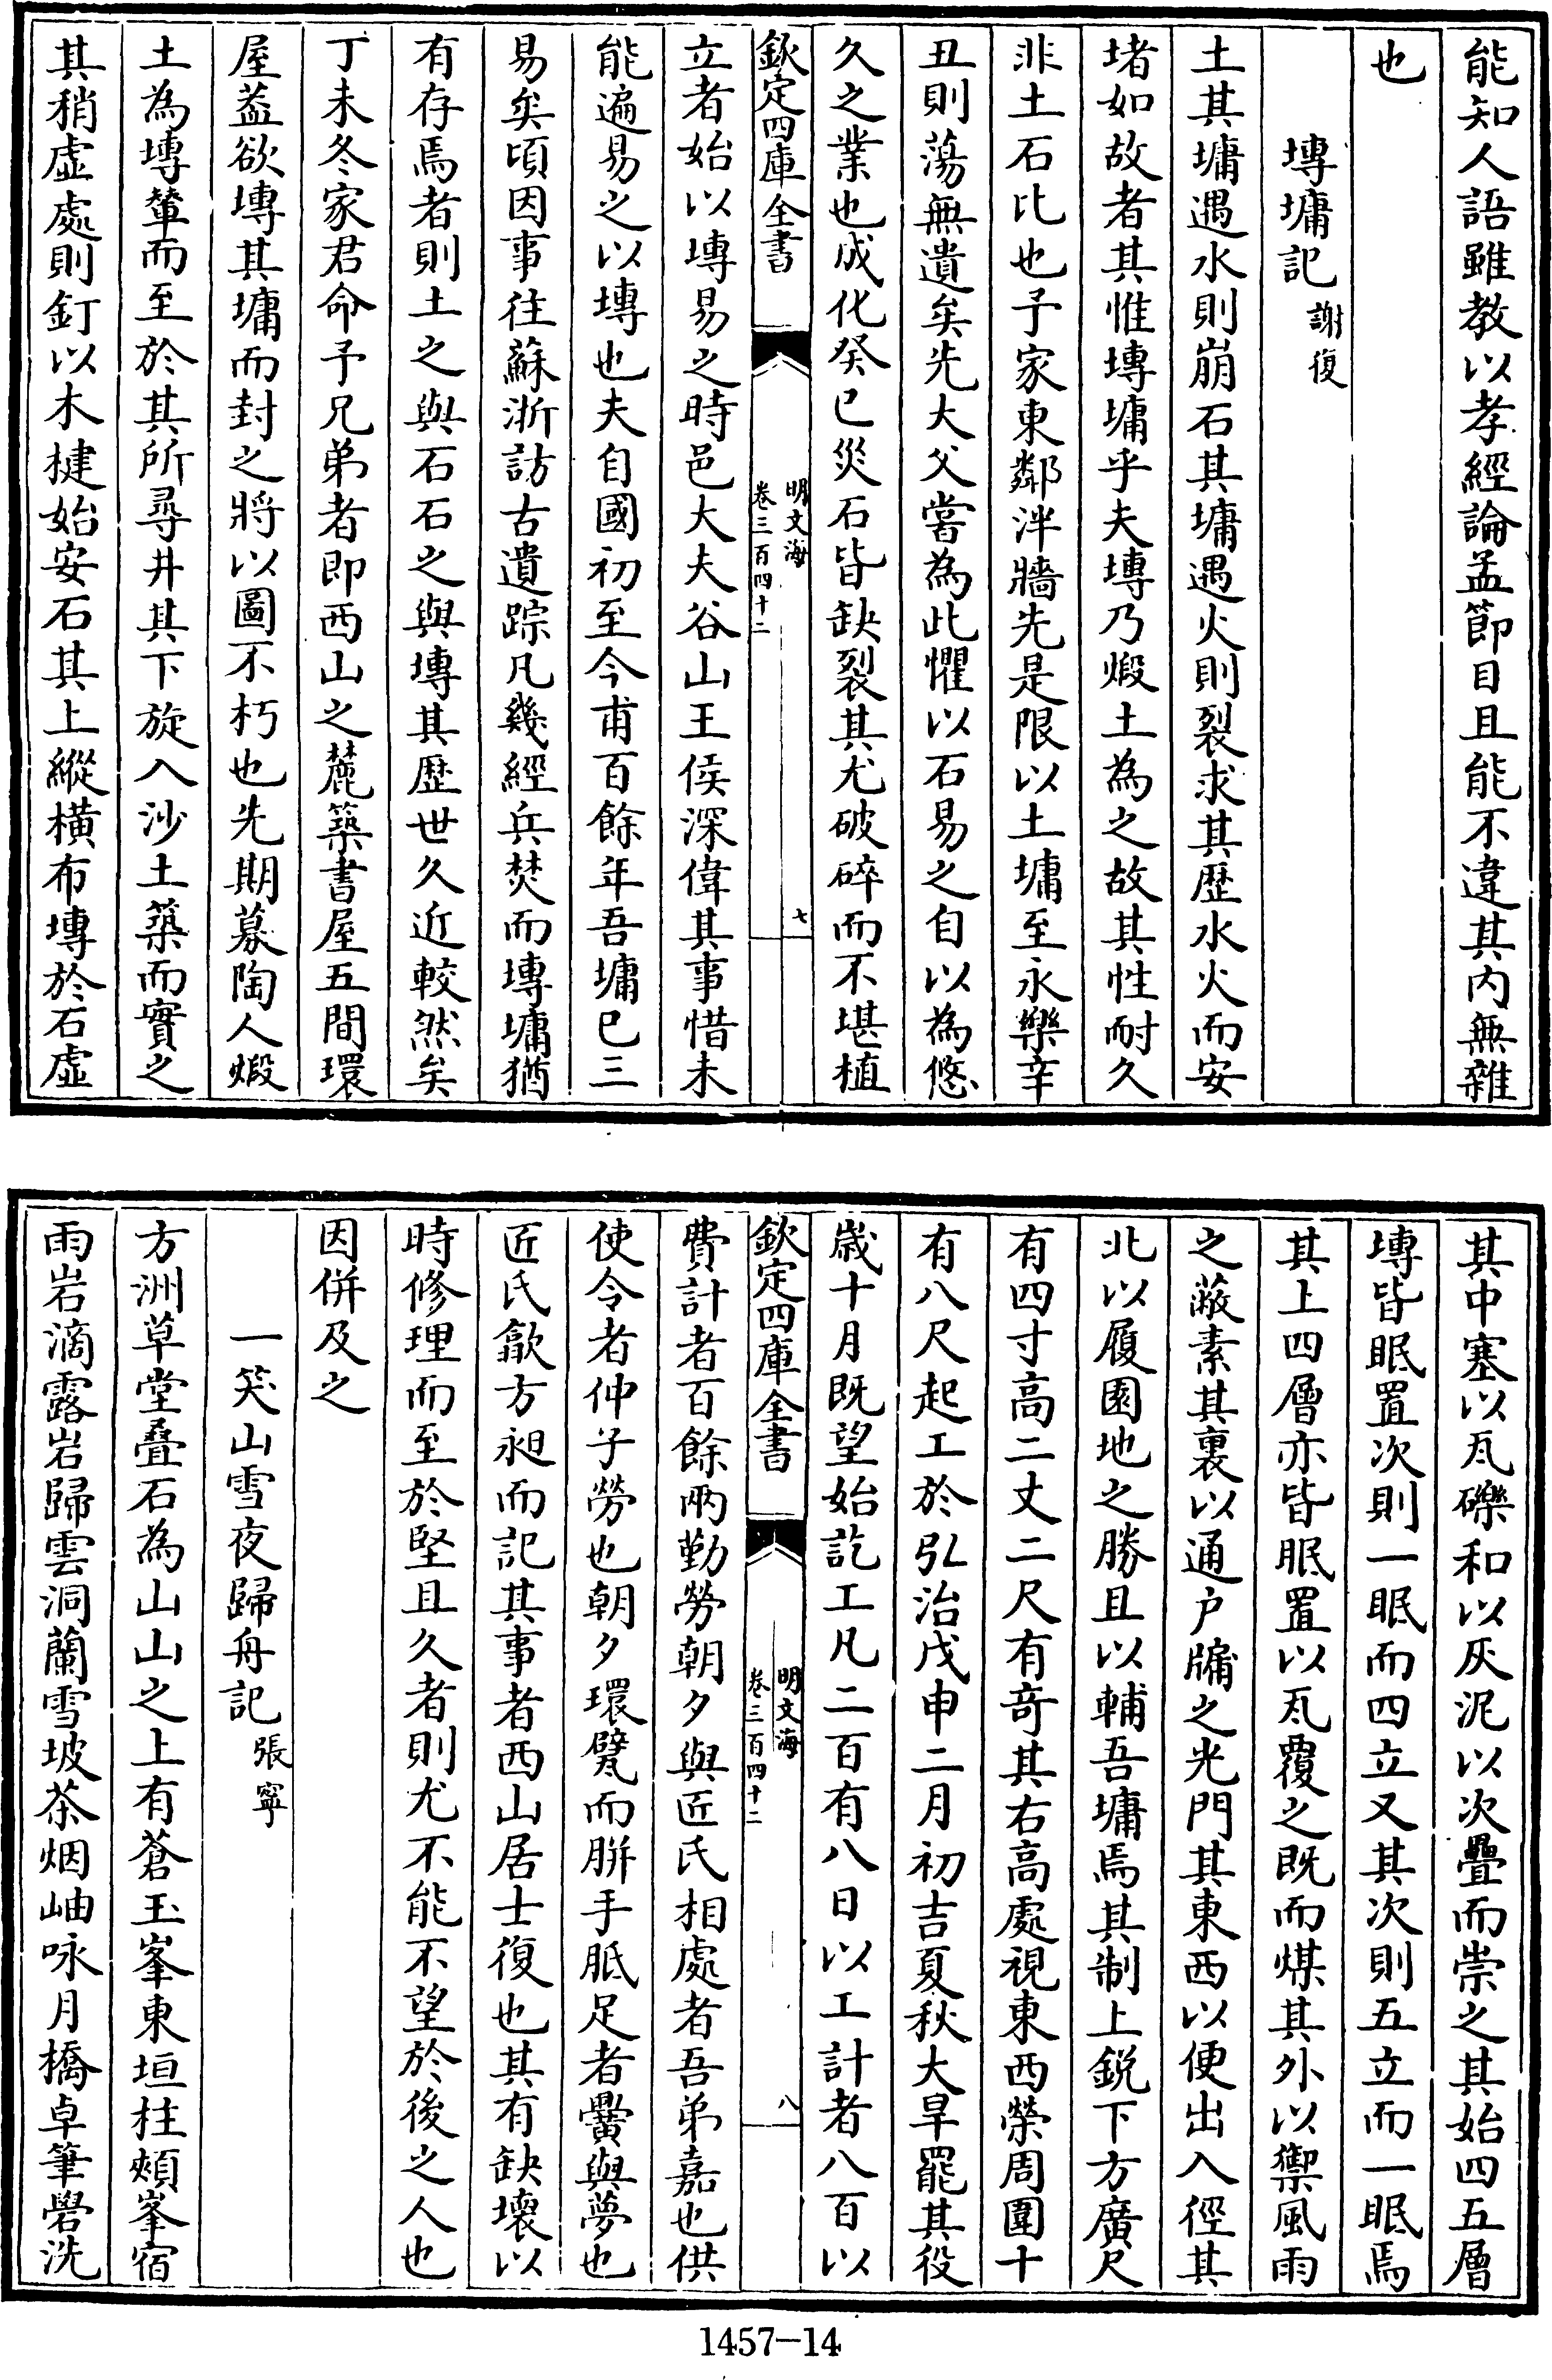 能知人語雖教以孝經論孟節目且能不違其内無雜
也
塼墉記 謝復
土其墉遇水則崩石其墉遇火則裂求其歴水火而安
堵如故者其惟塼墉乎夫塼乃煅土為之故其性耐久
非土石比也予家東鄰泮牆先是限以土墉至永樂辛
丑則蕩無遺矣先大父嘗為此懼以石易之自以為悠
久之業也成化癸巳災石皆缺裂其尤破碎而不堪植
欽定四庫全書
明文海
卷三百四十二
七
立者始以塼易之時邑大夫谷山王侯深偉其事惜未
能遍易之以塼也夫自國初至今甫百餘年吾墉已三
易矣頃因事往蘇浙訪古遺踪凡幾經兵焚而塼墉猶
有存焉者則土之與石石之與塼其歴世久近較然矣
丁未冬家君命予兄弟者即西山之麓築書屋五間環
屋葢欲塼其墉而封之將以圖不朽也先期募陶人煅
土為塼輦而至於其所尋井其下旋入沙土築而實之
其稍虚處則釘以木揵始安石其上縱横布塼於石虚
其中塞以瓦礫和以灰泥以次疊而崇之其始四五層
塼皆眠置次則一眠而四立又其次則五立而一眠焉
其上四層亦皆眠置以瓦覆之既而煤其外以禦風雨
之蔽素其裏以通户牖之光門其東西以便出入徑其
北以履園地之勝且以輔吾墉焉其制上銳下方廣尺
有四寸高二丈二尺有奇其右高處視東西榮周圍十
有八尺起工於弘治戊申二月初吉夏秋大旱罷其役
歲十月既望始訖工凡二百有八日以工計者八百以
欽定四庫全書
明文海
卷三百四十二
八
費計者百餘兩勤勞朝夕與匠氏相處者吾弟嘉也供
使令者仲子勞也朝夕環躄而胼手胝足者黌與夢也
匠氏歙方昶而記其事者西山居士復也其有缺壞以
時修理而至於堅且久者則尤不能不望於後之人也
因併及之
一笑山雪夜歸舟記 張寧
方洲草堂叠石為山山之上有蒼玉峯東垣柱頰峯宿
雨岩滴露岩歸雲洞蘭雪坡茶烟岫咏月橋卓筆礐洗
1457-14